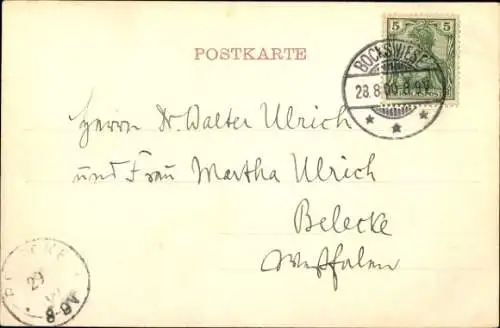 5 5
POSTKARTE
BOCKSWIESE
28.8.00.8-9V.
Herrn Dr. Walter Ulrich
und Frau Martha Ulrich
Belecke
Westfalen
29
8-9V